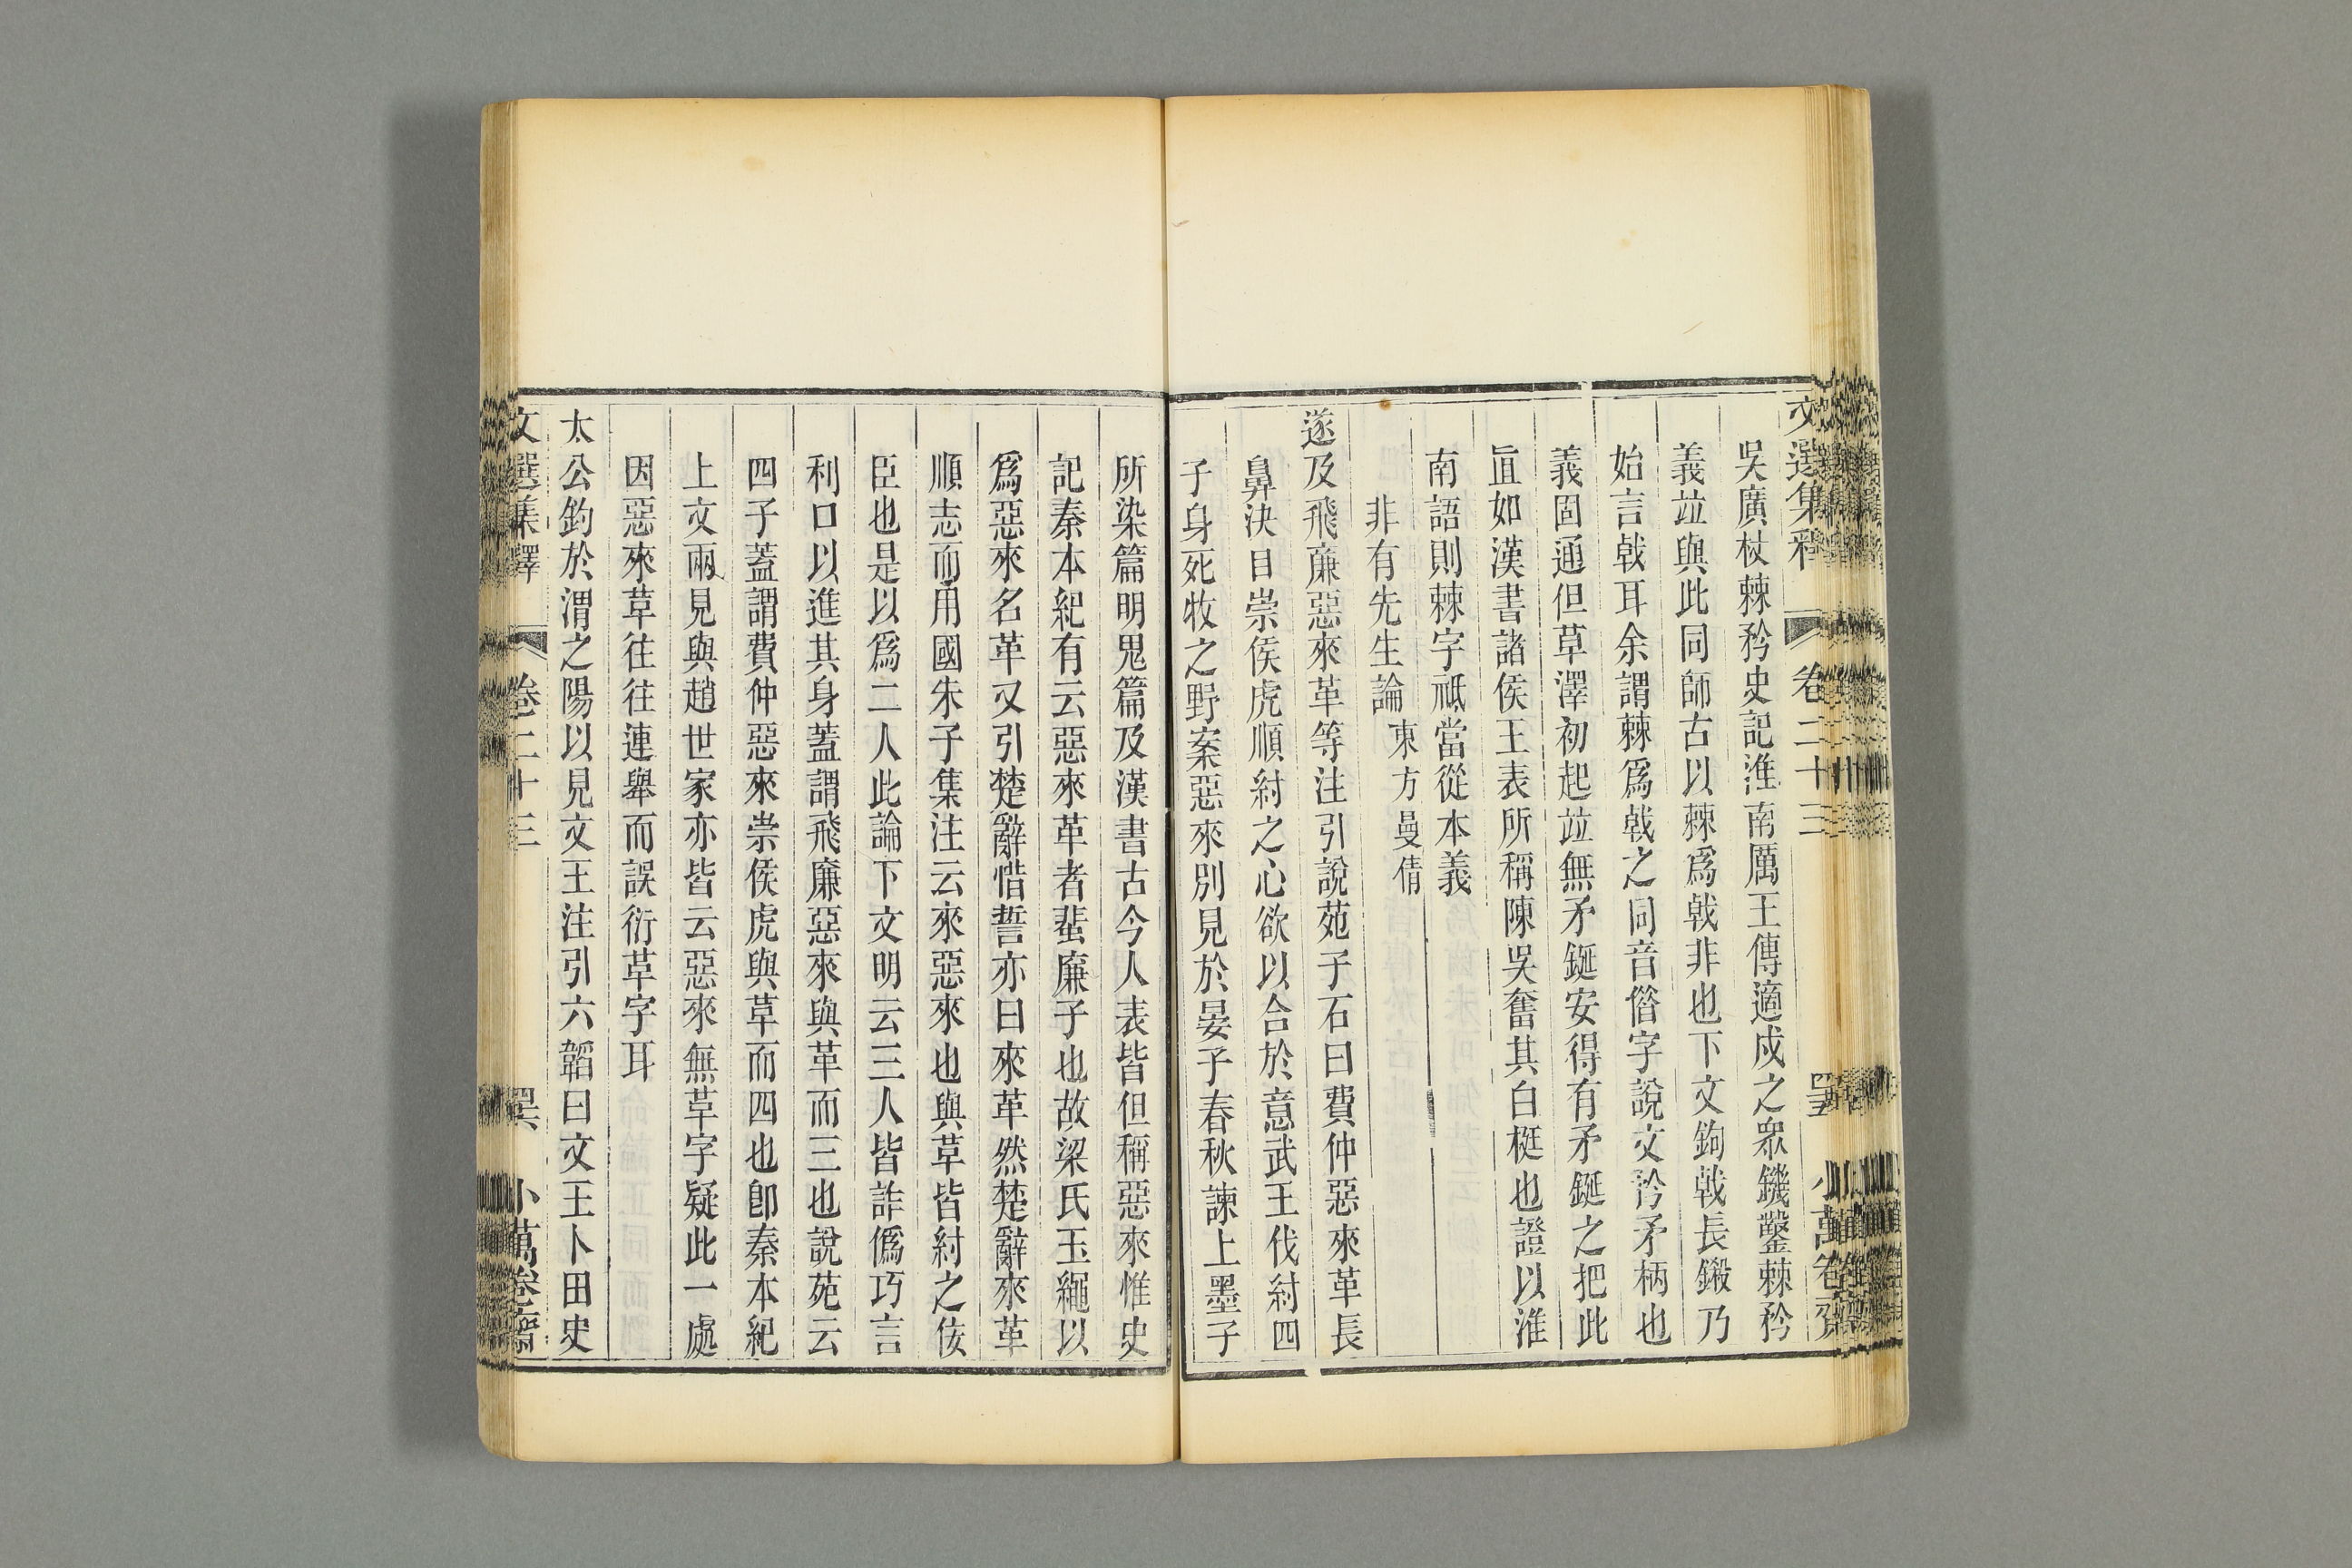 文選集釋 卷二十三 小萬卷齋
吳廣杖棘矜史記淮南厲王傳適戍之眾鐖鑿棘矜
義竝與此同師古以棘爲戟非也下文鉤戟長鎩乃
始言戟耳余謂棘爲戟之同音借字說文矜矛柄也
義固通但草澤初起竝無矛鋋安得有矛鋋之把此
直如漢書諸侯王表所稱陳吳奮其白梃也證以淮
南語則棘字祗當從本義
非有先生論 東方曼倩
遂及飛廉惡來革等注引說苑子石曰費仲惡來革長
鼻決目崇侯虎順紂之心欲以合於意武王伐紂四
子身死牧之野案惡來別見於晏子春秋諫上墨子
所染篇明鬼篇及漢書古今人表皆但稱惡來惟史
記秦本紀有云惡來革者蜚廉子也故梁氏玉繩以
爲惡來名革又引楚辭惜誓亦曰來革然楚辭來革
順志而用國朱子集注云來惡來也與革皆紂之佞
臣也是以爲二人此論下文明云三人皆詐僞巧言
利口以進其身蓋謂飛廉惡來與革而三也說苑云
四子蓋謂費仲惡來崇侯虎與革而四也卽秦本紀
上文兩見與趙世家亦皆云惡來無革字疑此一處
因惡來革往往連舉而誤衍革字耳
太公釣於渭之陽以見文王注引六韜曰文王卜田史
文選集釋 卷二十三 小萬卷齋